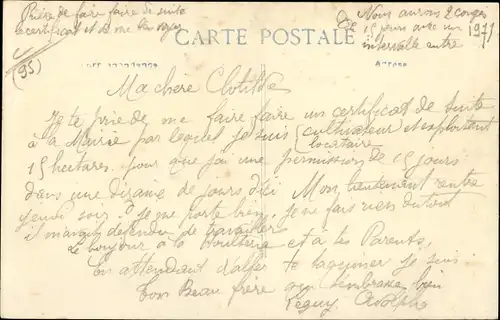 Prière de faire faire de suite
certificat et de me l'envoyer
Nous aurons 2 congés
De 15 jours avec un
intervalle entre
1971
CARTE POSTALE
(95)
ADRESSE
Ma chère Clotilde
Je te prie de me faire faire un certificat de suite
à la Mairie par lequel je suis (cultivateur) et exploitant
locataire
15 hectares. pour que j'ai une permission de 15 jours
dans une dizaine de jours d'ici Mon lieutenant rentre
jeudi soir je me porte bien, je ne fais rien du tout
il marque défendu de travailler
Le bonjour à la et à tes Parents,
En attendant d'aller te taquiner je suis
ton Beau frère qui t'embrasse bien
Adolphe